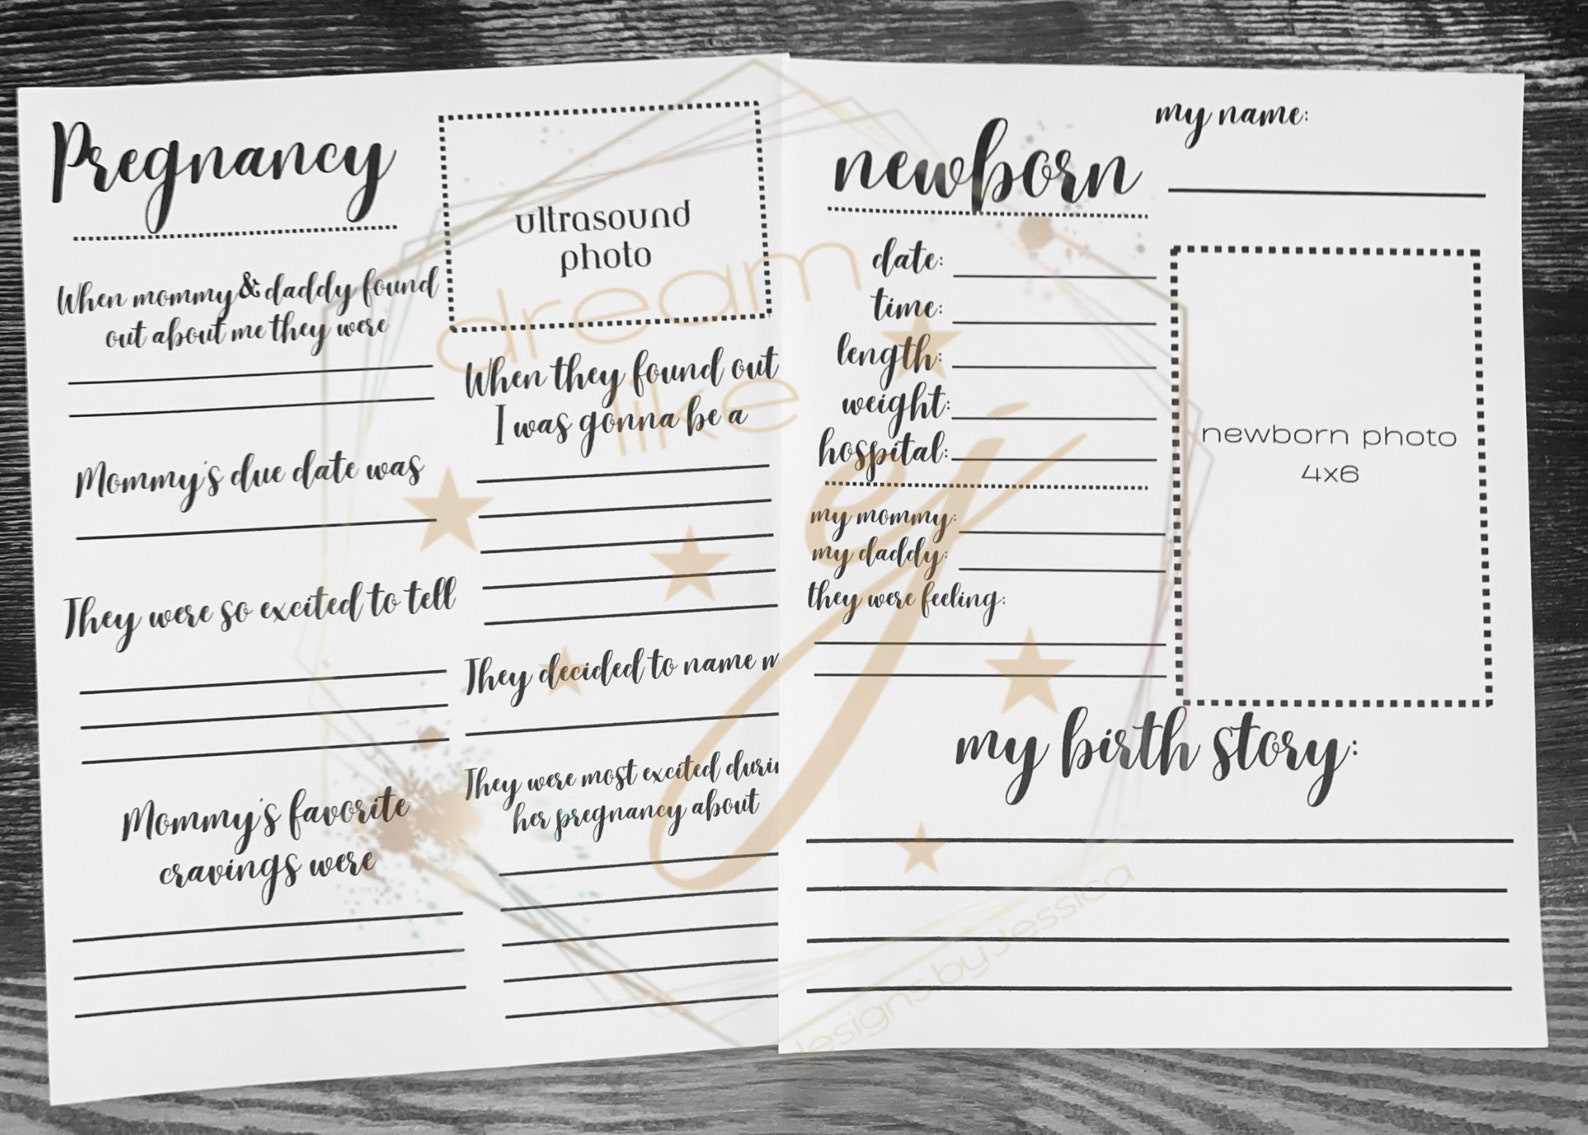 Pregnancy
ultrasound
photo
When mommy & daddy found
out about me they were
When they found out
I was gonna be a
Mommy's due date was
They were so excited to tell
They decided to name
They were most excited
her pregnancy about
Mommy's favorite
cravings were
newborn
my name:
date:
time:
length:
weight:
hospital:
newborn photo
4x6
my mommy:
my daddy:
they were feeling:
my birth story:
dream
like
ej
designs by Jessica